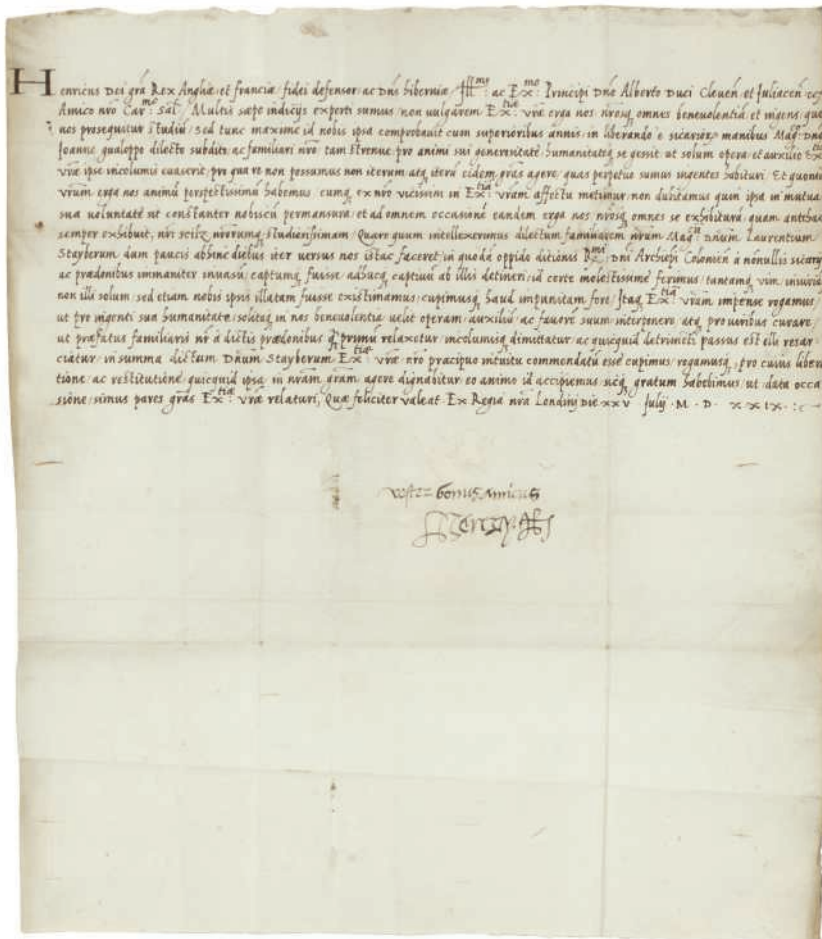 Henricus Dei grã Rex Angliæ et franciæ fidei defensor ac Dñs hiberniæ Ill^mo: ac Ex^mo: Principi Dño Alberto Duci Cleven et Juliacen
Amico nr̃o Car^mo: Sal̃ / Multis sæpe indicijs experti sumus / non vulgarem Ex^tiæ: vr̃æ erga nos nr̃osq, omnes benevolentiã et ingens, quo
nos prosequitur studiũ / sed tunc maxime id nobis ipsa comprobavit cum superioribus annis, in liberando e sicarior manibus Mag^co: Dño
Joanne gualoppo dilecto subdito, ac familiari nr̃o tam strenue, pro animi sui generositate humanitateq, se gessit, ut solum opera et auxilio Ex^tiæ:
vr̃æ ipse incolumis evaserit, pro qua re non possumus non iterum atq, iterũ eidem grãs agere, quas perpetuo sumus ingentes habituri. Et quoniã
vr̃um erga nos animũ perspectissimũ habemus cumq, ex nr̃o vicissim in Ex^tiã: vr̃am affectu metimur, non dubitamus quin ipsa in mutua
sua voluntate sit constanter nobiscũ permansura, et ad omnem occasionẽ eandem erga nos nr̃osq, omnes se exhibitura, quam antehac
semper exhibuit, nr̃i scilz nr̃orumq, studiosissimam / Quare quum intellexerimus dilectum familiarem nr̃um Mag^cũ: Dñum Laurentium
Stayberum dum paucis abhinc diebus iter versus nos istac faceret, in quodã oppido ditionis R^mi: Dñi Archiepi Colonieñ a nonullis sicarijs
ac prædonibus immaniter invasũ, captumq, fuisse, adhucq, captivũ ab illis detineri, id certe molestissime ferimus, tantamq, vim, iniuriã
non illi solum, sed etiam nobis ipsis illatam fuisse existimamus, cupimusq, haud impunitam fore, Itaq, Ex^tiã: vr̃am impense rogamus
ut pro ingenti sua humanitate, solitaq, in nos benevolentia velit operam, auxiliũ ac favorẽ suum interponere atq, pro viribus curare,
ut præfatus familiaris nr̃ à dictis prædonibus q̃ primũ relaxetur, incolumisq, dimittatur ac quicquid detrimẽti passus est, illi resar-
ciatur, in summa dictum Dñum Stayberum Ex^tiæ: vr̃æ nr̃o præcipuo intuitu commendatũ esse cupimus, rogamusq, pro cuius libera-
tione, ac restitutione, quicquid ipsa, in nr̃am grãm agere dignabitur, eo animo id accipiemus sicq, gratum habebimus, ut data occa-
sione, simus pares grãs Ex^tiæ: vr̃æ relaturi, Quæ feliciter valeat. Ex Regia nr̃a Londinj Die xxv Julij . M . D . xxix .
vester bonus amicus
Henry R